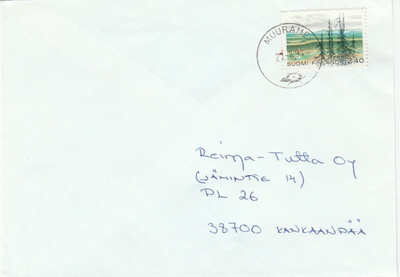 MUURAME
SUOMI FINLAND 2.40
Reima-Tutta Oy
(JÄMINTIE 14)
PL 26
38700 KANKAANPÄÄ